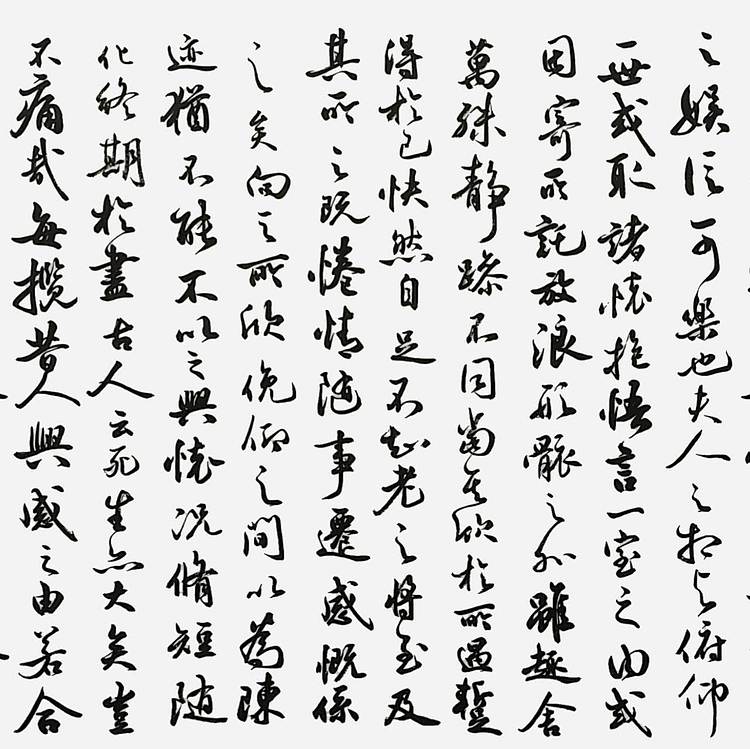 之娛信可樂也夫人之相與俯仰
一世或取諸懷抱悟言一室之內或
因寄所託放浪形骸之外雖趣舍
萬殊靜躁不同當其欣於所遇蹔
得於己快然自足不知老之將至及
其所之既惓情隨事遷感慨係
之矣向之所欣俛仰之間以為陳
迹猶不能不以之興懷況脩短隨
化終期於盡古人云死生亦大矣豈
不痛哉每攬昔人興感之由若合